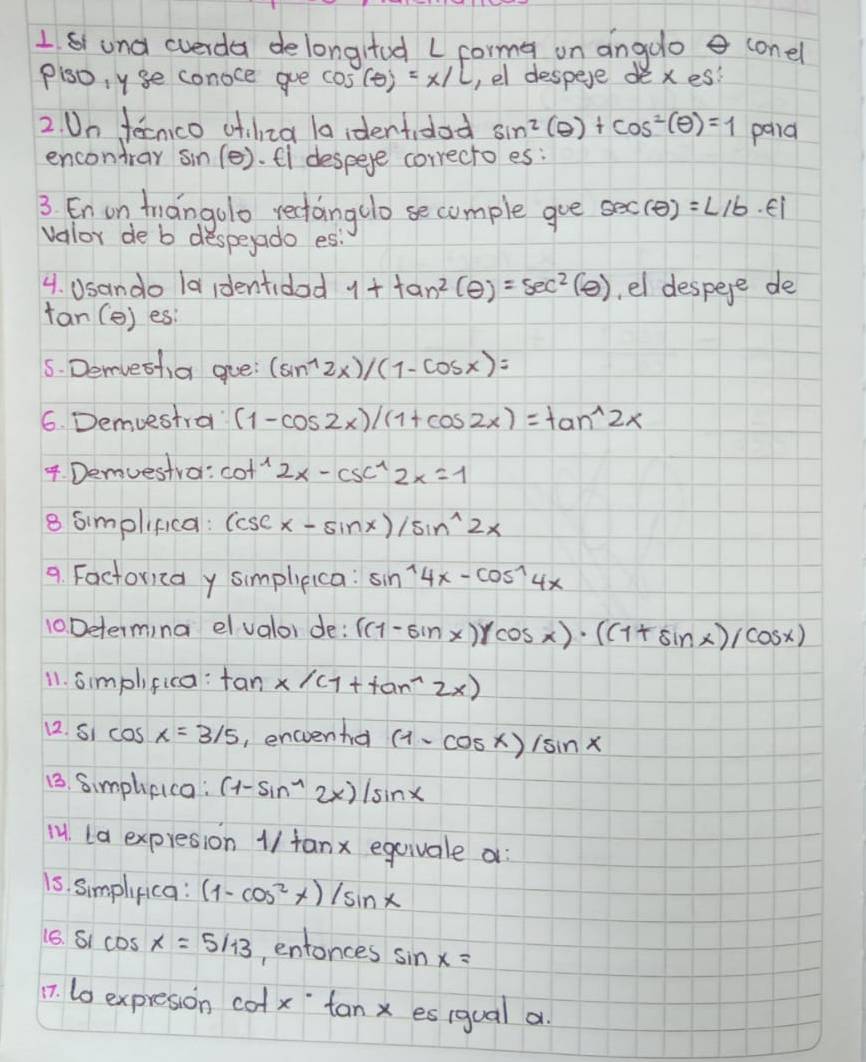 1. Si una cuerda de longitud L forma un ángulo θ con el
piso, y se conoce que cos(θ) = x/L, el despeje de x es:
2. Un técnico utiliza la identidad sin²(θ) + cos²(θ) = 1 para
encontrar sin(θ). El despeje correcto es:
3. En un triángulo rectángulo se cumple que sec(θ) = L/b. El
valor de b despejado es:
4. Usando la identidad 1 + tan²(θ) = sec²(θ), el despeje de
tan(θ) es:
5. Demuestra que: (sin^2x)/(1-cosx)=
6. Demuestra: (1-cos2x)/(1+cos2x) = tan^2x
7. Demuestra: cot^2x - csc^2x = 1
8 Simplifica: (csc x - sinx)/sin^2x
9. Factoriza y simplifica: sin^4x - cos^4x
10. Determina el valor de: ((1-sinx)/(cosx)·((1+sinx)/cosx)
11. Simplifica: tan x /(1 + tan^2x)
12. Si cos x = 3/5, encuentra (1-cosx)/sin x
13. Simplifica: (1-sin^2x)/sinx
14. La expresión 1/tanx equivale a:
15. Simplifica: (1-cos²x)/sinx
16. Si cos x = 5/13, entonces sin x =
17. La expresión cot x · tan x es igual a.